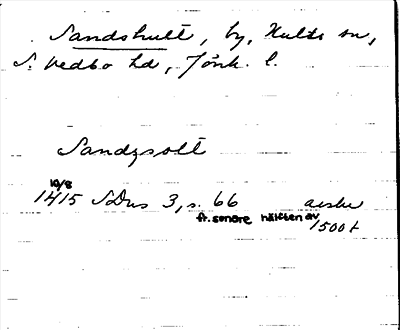 Sandshult, by, Hults sn,
S. Vedbo hd, Jönk. l.
Sandzsolt
10/8
1415 SDns 3, s. 66 avskr
fr. senare hälften av
1500 t